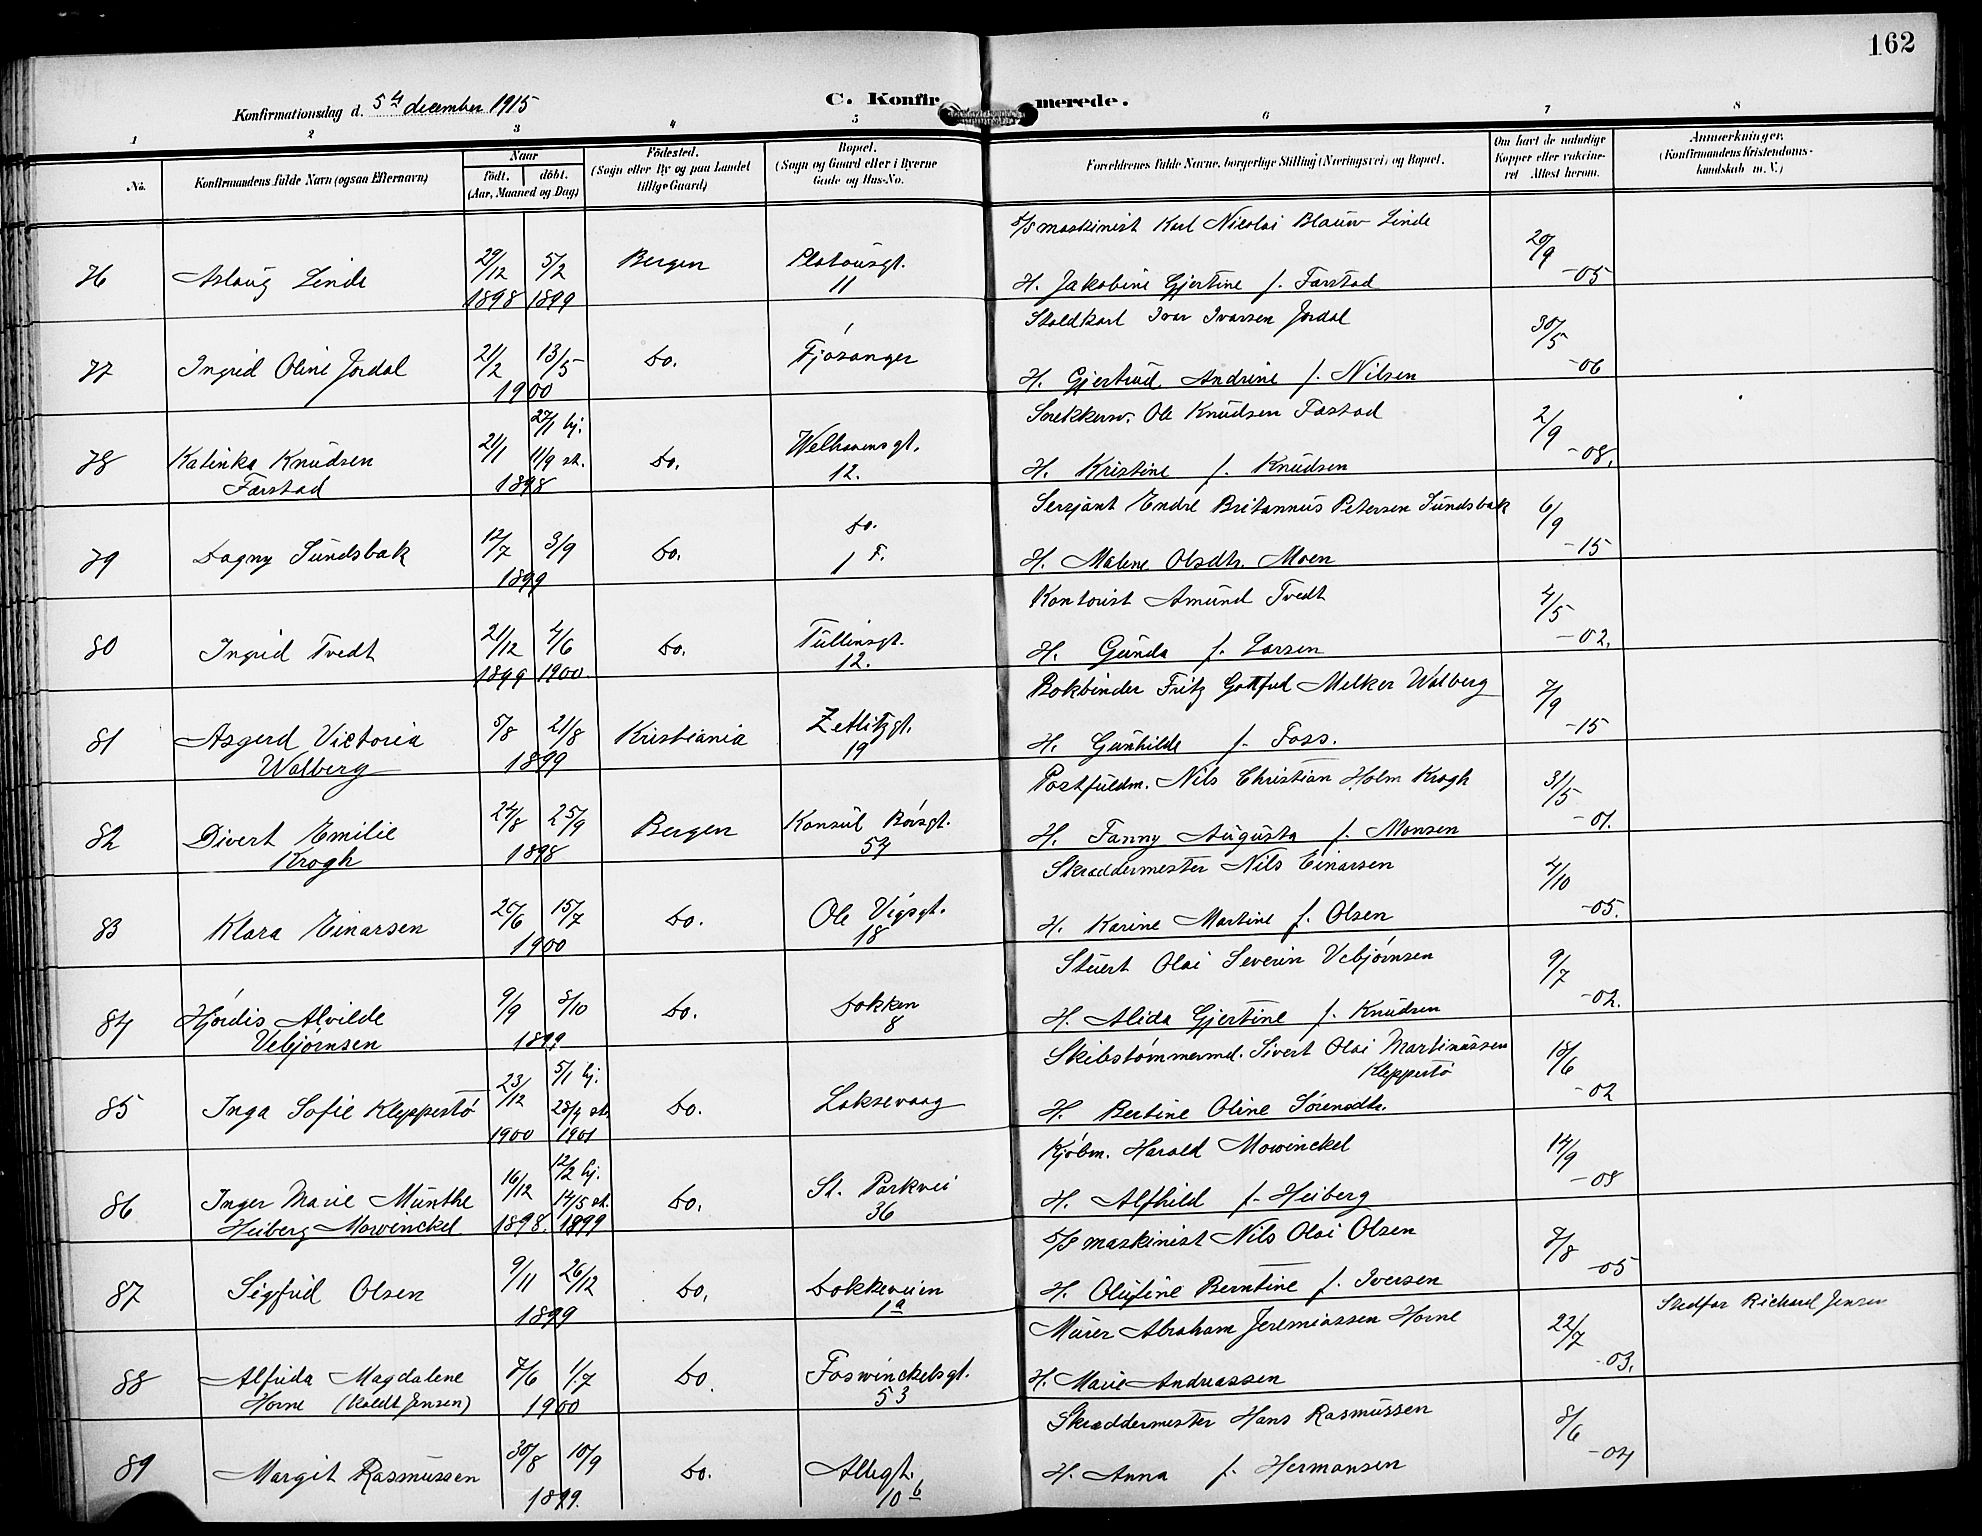 162
Konfirmationsdag d. 5te december 1915
C. Konfirmerede.
1 2 3 4 5 6 7 8
No. Konfirmandens fulde Navn (ogsaa Efternavn) Naar født. døbt. (Aar, Maaned og Dag)
Fødested. (Sogn eller By og paa Landet tillige Gaard)
Bopæl. (Sogn og Gaard eller i Byerne Gade og Hus-No.
Forældrenes fulde Navne, borgerlige Stilling (Næringsvei) og Bopæl.
Om havt de naturlige Kopper eller vaksineret Attest herom.
Anmærkninger. (Konfirmandens Kristendomskundskab m. V.)
S/S maskinist Karl Nicolai Blauw Linde
76 Aslaug Linde 29/12 1898 5/2 1899 Bergen Platousgt. 11 20/9 -05
H. Jakobine Gjertine f. Farstad
Staldkarl Ivar Ivarsen Jordal
77 Ingrid Oline Jordal 21/2 13/5 1900 Do. Fjøsanger 30/5 -06
H. Gjertrud Andrine f. Nilsen
Snekkersv. Ole Knudsen Farstad
78 Katinka Knudsen Farstad 21/1 27/1 hj. 11/9 st. 1898 Do. Welhavensgt. 12. 2/9 -08.
H. Kristine f. Knudsen
Sersjant Endre Britannus Petersen Sundsbak
79 Dagny Sundsbak 12/7 3/9 1899 Do. Do. 1 F. 6/9 -15
H. Malene Olsdtr. Moen
Kontorist Amund Tvedt
80 Ingrid Tvedt 21/12 1899 4/6 1900 Do. Tullinsgt. 12. 4/5 -02.
H. Gunda f. Larsen
Bokbinder Fritz Gottfred Melker Walberg
81 Asgerd Victoria Walberg 5/8 21/8 1899 Kristiania Zetlitzgt. 19 7/9 -15
H. Gunhilde f. Foss.
Postfuldm. Nils Christian Holm Krogh
82 Divert Emilie Krogh 24/8 25/9 1898 Bergen Konsul Børsgt. 54 31/5 -01.
H. Fanny Augusta f. Monsen
Skræddermester Nils Einarsen
83 Klara Einarsen 20/6 15/7 1900 Do. Ole Vigsgt. 18 4/10 -05.
H. Karine Martine f. Olsen
Stuert Olai Severin Vebjørnsen
84 Hjørdis Alvilde Vebjørnsen 9/9 8/10 1899 Do. Dokken 8 9/7 -02.
H. Alida Gjertine f. Knudsen
Skibstømmermd. Sivert Olai Martinussen Kleppestø
85 Inga Sofie Kleppestø 23/12 1900 5/1 hj. 28/4 st. 1901 Do. Laksevaag 18/6 -02
H. Bertine Oline Sørensdtr.
Kjøbm. Harald Mowinckel
86 Inger Marie Munthe Heiberg Mowinckel. 16/12 1898. 12/2 hj. 14/5 st. 1899 Do. St. Parkvei 36 14/9 -08
H. Alfhild f. Heiberg
S/S maskinist Nils Olai Olsen
87 Sigfrid Olsen 9/11 26/12 1899 Do. Dokkeveien 1a 7/8 -05
H. Olufine Berntine f. Iversen
Murer Abraham Jeremiassen Horne
88 Alfrida Magdalene Horne (Kaldt Jensen) 7/6 1/7 1900 Do. Foswinckelsgt. 53 22/7 -03. Stedfar Richard Jensen
H. Marie Andreassen
Skræddermester Hans Rasmussen
89 Margit Rasmussen 30/8 10/9 1899. Do. Allegt. 10 b 8/6 -04
H. Anna f. Hermansen